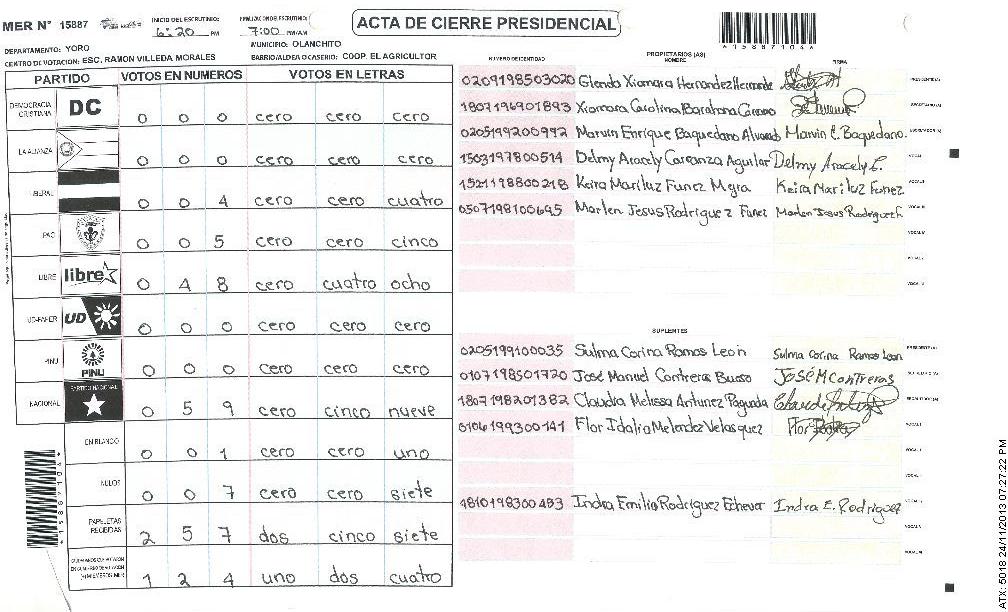 MER N° 15887
INICIO DEL ESCRUTINIO: 6:20 PM
FINALIZACION ESCRUTINIO: 7:00 PM/AM
ACTA DE CIERRE PRESIDENCIAL
*15887104*
DEPARTAMENTO: YORO
MUNICIPIO: OLANCHITO
CENTRO DE VOTACION: ESC. RAMON VILLEDA MORALES
BARRIO/ALDEA O CASERIO: COOP. EL AGRICULTOR
PARTIDO VOTOS EN NUMEROS VOTOS EN LETRAS
DEMOCRACIA CRISTIANA DC 0 0 0 cero cero cero
LA ALIANZA 0 0 0 cero cero cero
LIBERAL 0 0 4 cero cero cuatro
PAC 0 0 5 cero cero cinco
LIBRE libre 0 4 8 cero cuatro ocho
UD-FAPER UD 0 0 0 cero cero cero
PINU PINU 0 0 0 cero cero cero
NACIONAL PARTIDO NACIONAL 0 5 9 cero cinco nueve
EN BLANCO 0 0 1 cero cero uno
NULOS 0 0 7 cero cero siete
PAPELETAS RECIBIDAS 2 5 7 dos cinco siete
1 2 4 uno dos cuatro
*15887104*
NUMERO DE IDENTIDAD PROPIETARIOS (AS) FIRMA
0209198503020 Glenda Xiomara Hernandez Hernande PRESIDENTE(A)
1807196901893 Xiomara Carolina Barahona Carcamo SECRETARIO(A)
0205199200992 Marvin Enrique Baquedano Alvarado Marvin E. Baquedano. ESCRUTADOR(A)
1503197800514 Delmy Aracely Carranza Aguilar Delmy Aracely C. VOCAL I
1521198800218 Keira Mariluz Funez Mejra Keira Mariluz Funez VOCAL II
0507198100695 Marlen Jesus Rodriguez Funez Marlen Jesus Rodriguez F. VOCAL III
VOCAL IV
VOCAL V
SUPLENTES
0205199100035 Sulma Corina Ramos Leon Sulma Corina Ramos Leon PRESIDENTE(A)
0107198501720 José Manuel Contreras Bueso José M Contreras SECRETARIO(A)
1807198201382 Claudia Melissa Antunez Paguada ESCRUTADOR(A)
0106199300141 Flor Idalia Melendez Velasquez Flor VOCAL I
4810198300493 Indra Emilia Rodriguez Echever Indra E. Rodriguez
ATX: 5018 24/11/2013 07:27:22 PM